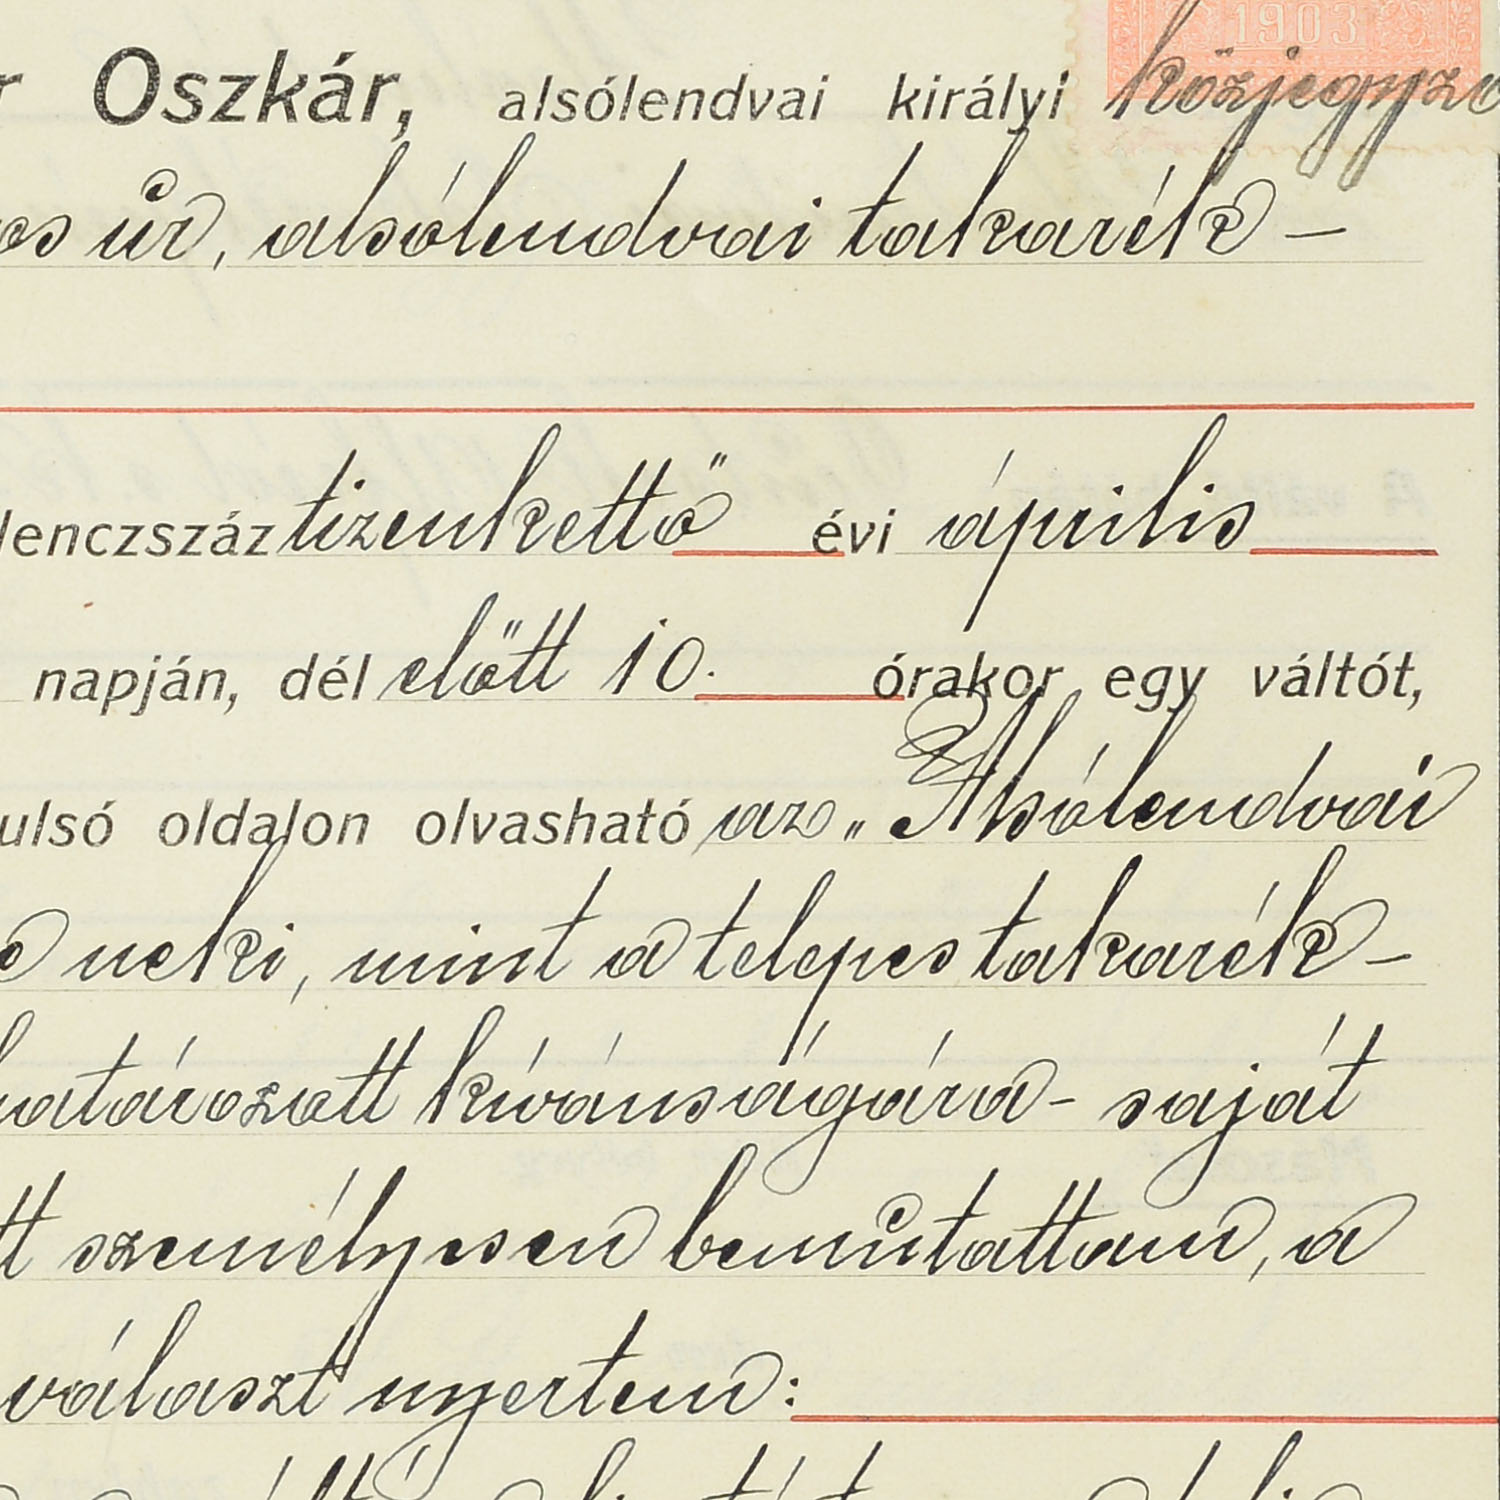 1903
Oszkár, alsólendvai királyi közjegyző
úr, alsólendvai takarék-
lenczszáz tizenkettő évi április
napján, dél előtt 10. órakor egy váltót,
ulsó oldalon olvasható az „Alsólendvai
neki, mint a telepes takarék-
határozott kívánságára - saját
személyesen bemutattam, a
választ nyertem: